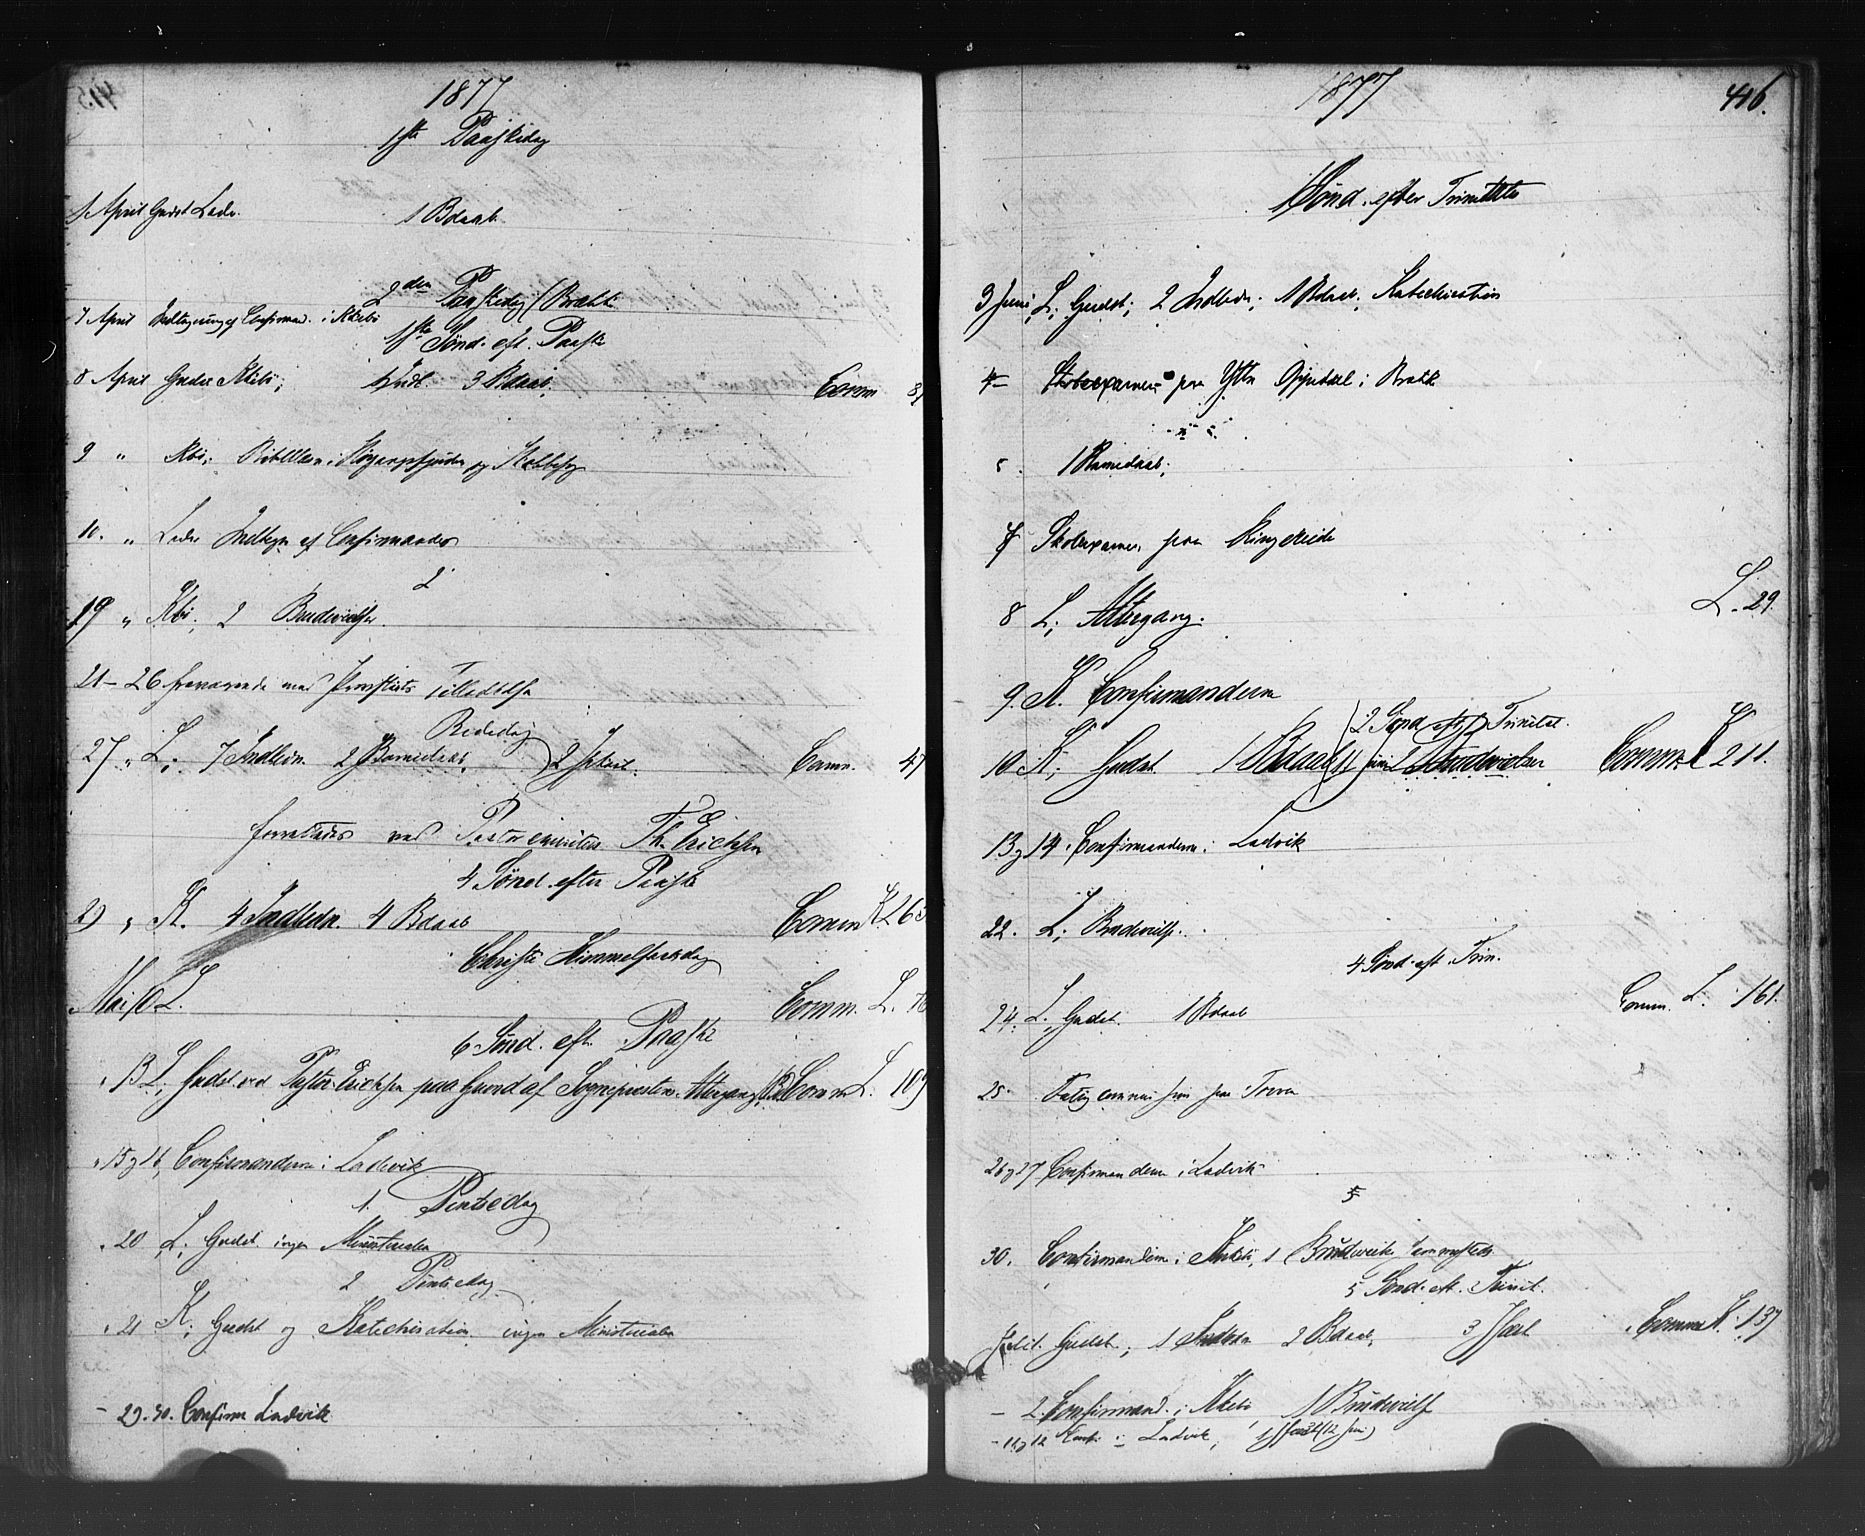 1877
1ste Paaskedag
1 April Gudst Ladv. 1 Bdaab.
2den Paaskedag (Brække
7 April Indtegning af Confirmand. i Kkebø
1ste Sønd. eft. Paaske
8 April Gudst Kkebø; Indl. 3 Bdaab; Comm 8
9 " Kbø;
10. " Ladv Indtegn af Confirmander
2
19 " Kbø; 2 Brudevielser.
21 – 26 fraværende med Provstiets Tilladelse
Bededag
27 " L; 7 Indledn. 2 Barnedaab, 2 Jordf. Comm. 47
forrettedes ved Pastor emeritus Th. Erichsen
4 Sønd. efter Paaske
29 " K. 4 Indledn. 4 Bdaab Comm K 263
Christi Himmelfartsdag
Mai 10 L. Comm. L.
6 Sønd. eft. Paaske
" 13 L; Gudst. ved Pastor Erichsen paa Grund af Sognepræstens Altergang Comm L. 109
" 15 og 16, Confirmanderne i Ladvik
1. Pintsedag
" 20 L; Gudst. ingen Ministerialia
2 Pintsedag
" 21 K; Gudst og Katechisation ingen Ministerialia
– 29. 30. Confirm Ladvik
1877 416.
1 Sønd. efter Trinitatis
3 Juni L; Gudst; 2 Indledn; 1 Bdaab, Katechisation
4 – Skoleexamen paa Ytre Oppedal i Brække
5. 1 Barnedaab;
7 Skoleexamen paa Ringereide
8 L; Altergang. L. 29.
9 K. Confirmanderne
2 Sønd eft Trinitat.
10 K; Gudst. 1 Bdaab 2 Brudevielser Comm. K 211.
13 og 14. Confirmanderne i Ladvik
22. L; Brudevielse.
4 Sønd. eft. Trin.
24. L. Gudst. 1 Bdaab Comm. L. 161.
25. Fattigcommission paa
26 og 27 Confirmanderne i Ladvik
5
30. Confirmanderne i Kkebø, 1 Brudevielse
5 Sønd. eft. Trinit.
1 Juli. Gudst; 1 Indledn 2 Bdaab, 3 Jfæst Comm K. 137
– 2. Confirmand. i Kkebø 1 Brudevielse
– 11 og 12 Konf. i Ladvik, 1 Jfæst (12